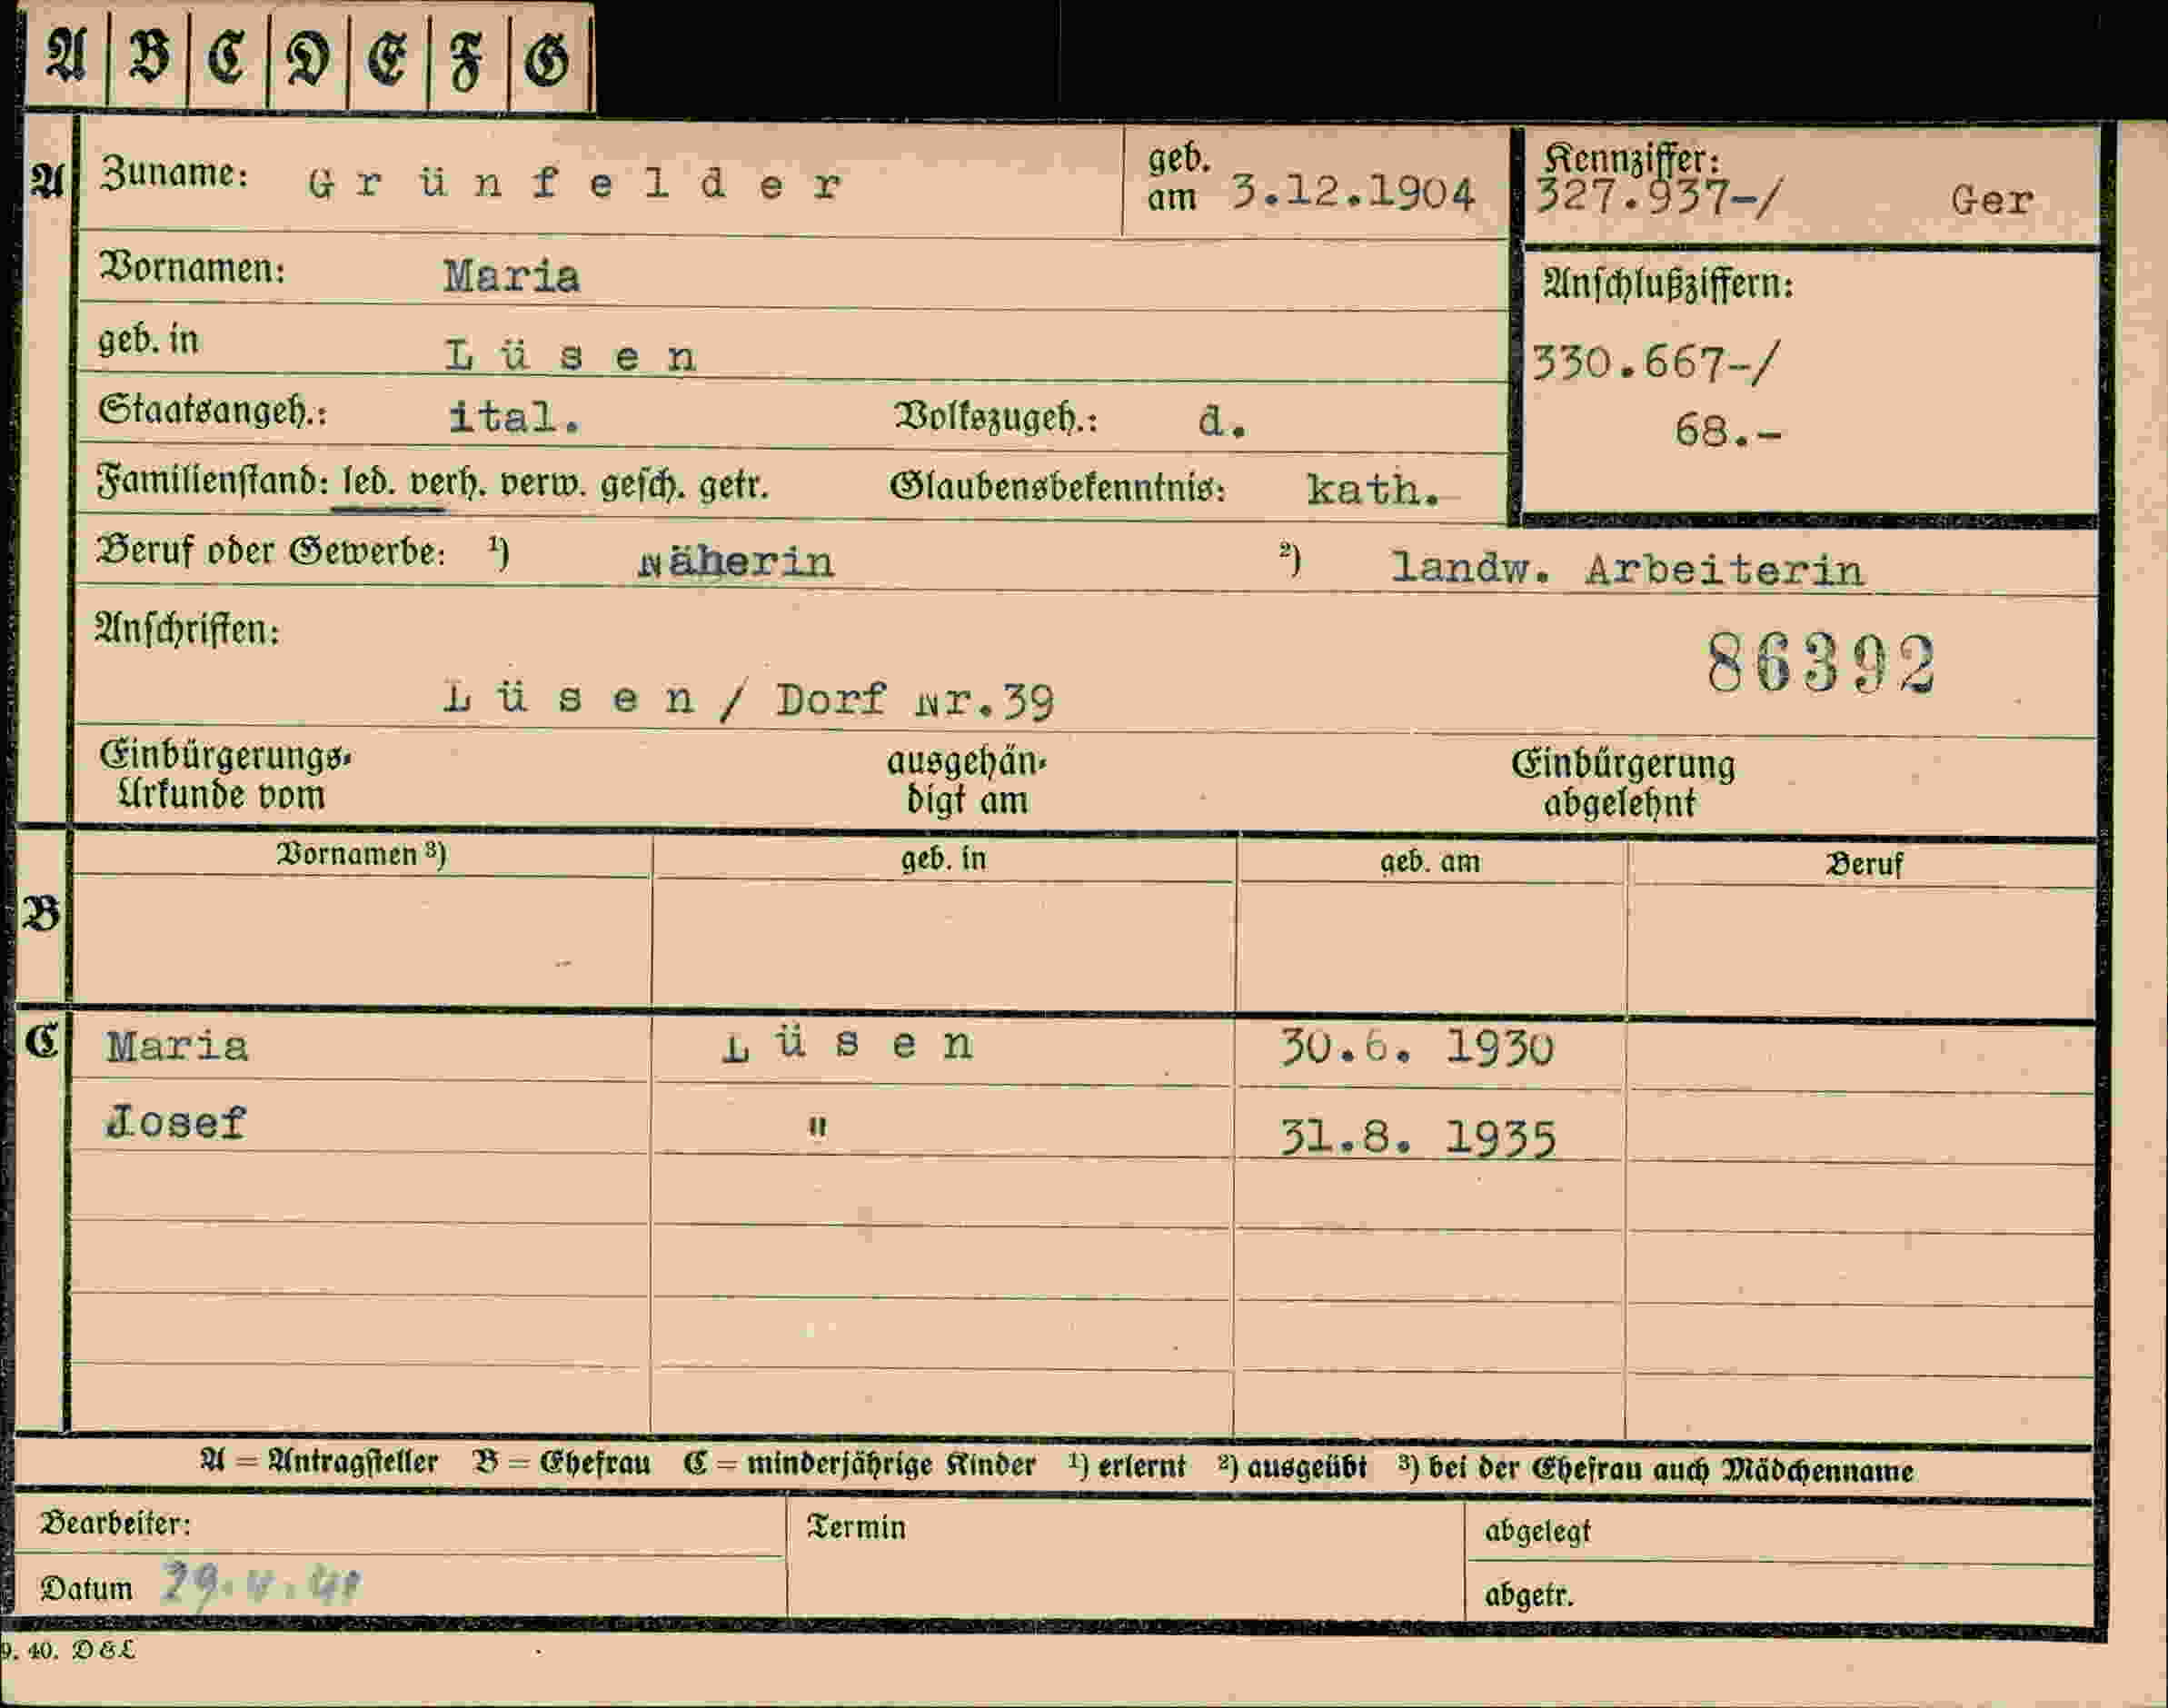 A B C D E F G
A Zuname: Grünfelder geb. am 3.12.1904 Kennziffer: 327.937-/ Ger
Vornamen: Maria
Anschlußziffern:
geb. in Lüsen
330.667-/
Staatsangeh.: ital. Volkszugeh.: d.
68.-
Familienstand: led. verh. verw. gesch. getr. Glaubensbekenntnis: kath.
Beruf oder Gewerbe: ¹) Näherin ²) landw. Arbeiterin
Anschriften:
86392
Lüsen / Dorf Nr.39
Einbürgerungs- ausgehän- Einbürgerung
Urkunde vom digt am abgelehnt
Vornamen ³) geb. in geb. am Beruf
B
C Maria Lüsen 30.6. 1930
Josef " 31.8. 1935
A = Antragsteller B = Ehefrau C = minderjährige Kinder ¹) erlernt ²) ausgeübt ³) bei der Ehefrau auch Mädchenname
Bearbeiter: Termin abgelegt
Datum abgetr.
9. 40. D&L